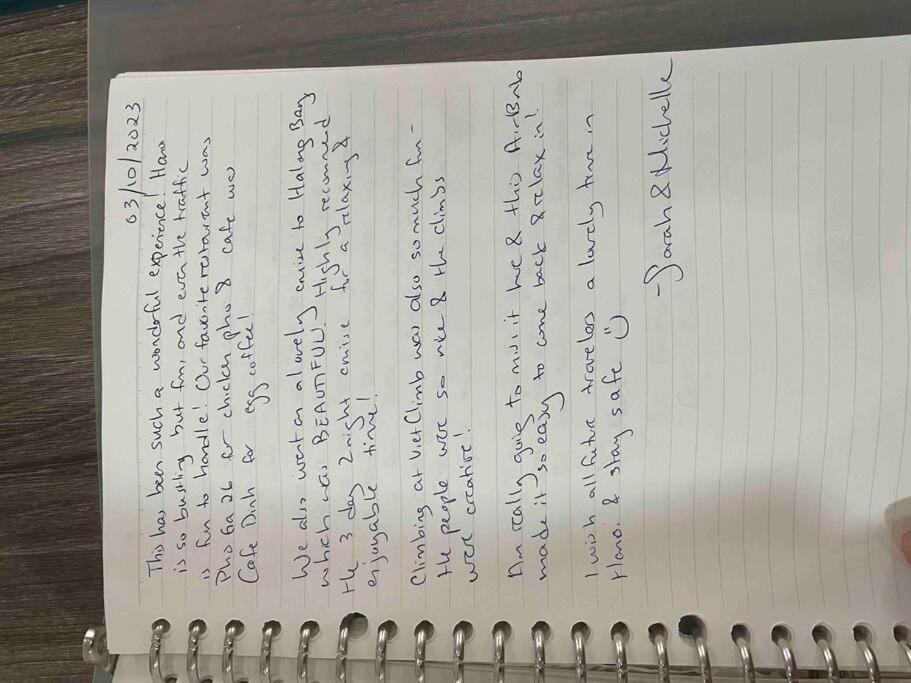 03/10/2023
This has been such a wonderful experience! Hanoi
is so bustling but fun, and even the traffic
is fun to handle! Our favorite restaurant was
Pho Ga 26 for chicken pho & cafe was
Cafe Dinh for egg coffee!
We also went on a lovely cruise to Halong Bay
which was BEAUTIFUL! Highly recommend
the 3 day 2 night cruise for a relaxing &
enjoyable time!
Climbing at VietClimb was also so much fun -
the people were so nice & the climbs
were creative!
Am really going to miss it here & this AirBnb
made it so easy to come back & relax in!
I wish all future travelers a lovely time in
Hanoi & stay safe :)
- Sarah & Michelle